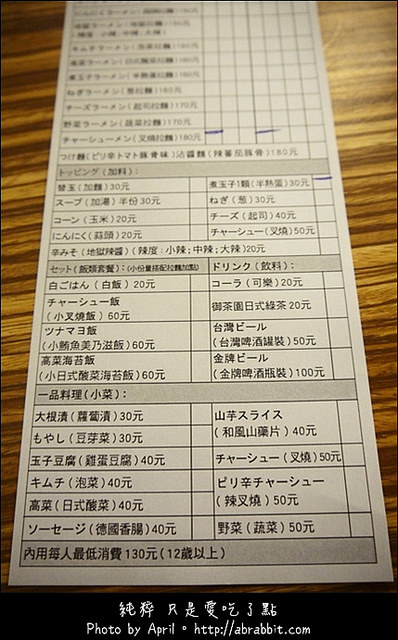 キムチラーメン(泡菜拉麵)180元
ねぎラーメン(蔥拉麵)160元
チーズラーメン(起司拉麵)170元
野菜ラーメン(蔬菜拉麵)170元
チャーシューメン(叉燒拉麵)180元
つけ麵(ピリ辛トマト豚骨味)沾醬麵(辣蕃茄豚骨)180元
トッピング(加料):
替玉(加麵)30元
煮玉子1顆(半熟蛋)30元
スープ(加湯)半份30元
ねぎ(蔥)30元
コーン(玉米)20元
チーズ(起司)40元
にんにく(蒜頭)20元
チャーシュー(叉燒)50元
辛みそ(地獄辣醬)(辣度:小辣;中辣;大辣)20元
セット(飯類套餐):(小份量搭配拉麵加點)
ドリンク(飲料):
白ごはん(白飯)20元
コーラ(可樂)20元
チャーシュー飯
(小叉燒飯)60元
御茶園日式綠茶20元
ツナマヨ飯
(小鮪魚美乃滋飯)60元
台灣ビール
(台灣啤酒罐裝)50元
高菜海苔飯
(小日式酸菜海苔飯)60元
金牌ビール
(金牌啤酒瓶裝)100元
一品料理(小菜):
大根漬(蘿蔔漬)30元
山芋スライス
(和風山藥片)40元
もやし(豆芽菜)30元
玉子豆腐(雞蛋豆腐)40元
チャーシュー(叉燒)50元
キムチ(泡菜)40元
ピリ辛チャーシュー
(辣叉燒)50元
高菜(日式酸菜)40元
ソーセージ(德國香腸)40元
野菜(蔬菜)50元
內用每人最低消費130元(12歲以上)
純粹 只是愛吃了點
Photo by April。http://abrabbit.com